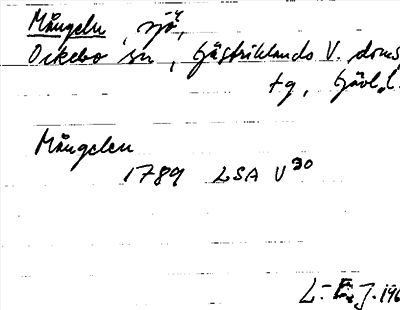 Mångeln, sjö,
Ockelbo sn, Gästriklands V. doms
tg, Gävl. l.
Mångelen
1789 LSA V30
L-E. J. 196